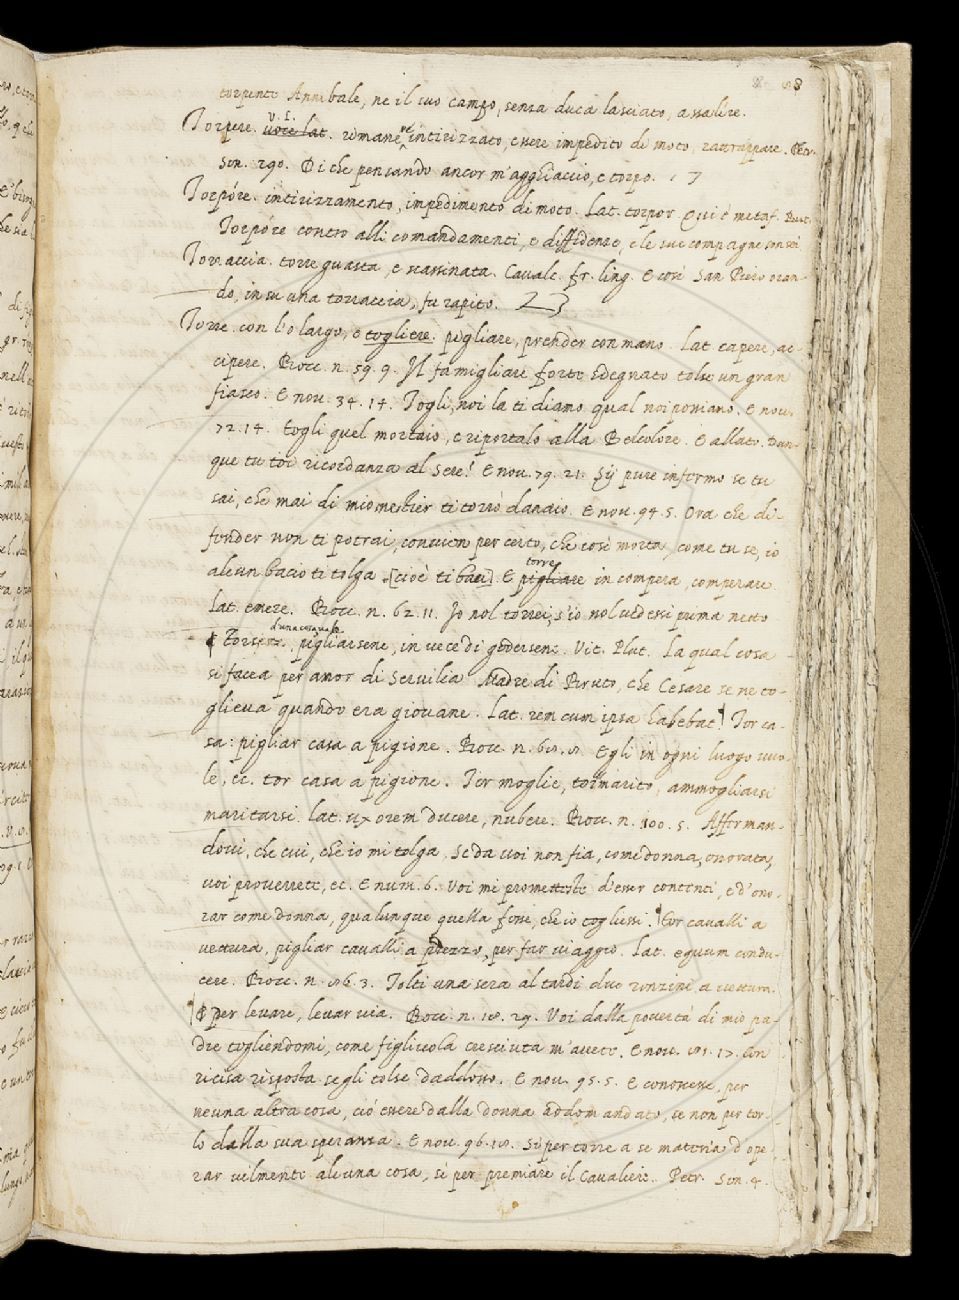 98
torpente Annibale, ne il suo campo, senza duca lasciato, assalire.
V. L.
Torpere. voce lat. rimanere intirizzato, essere impedito di moto, rattrappare. Petr.
Son. 290. Di che pensando ancor m'agghiaccio, e torpo.
Torpóre. intirizzamento, impedimento di moto. Lat. torpor. Qui è metaf. But.
Torpóre contro alli comandamenti, e diffidenze, e le sue compagne son sei
Torraccia. torre guasta, e scassinata. Cavalc. fr. ling. E così San Piero oran-
do, in su una torraccia, fu rapito.
Torre. con l'o largo, e togliere. pigliare, prender con mano. Lat. capere, ac-
cipere. Bocc. n. 59. 9. Il famigliare forte sdegnato tolse un gran
fiasco. E nov. 34. 14. Togli, noi la ti diamo qual noi possiamo. E nov.
72. 14. togli quel mortaio, e riportalo alla Belcolore. E allato. Dun-
que tu toi ricordanza al Sere! E nov. 79. 21. Sij pure infermo se tu
sai, che mai di mio mestier ti torrò danaio. E nov. 94. 5. Ora che di-
fender non ti potrai, convien per certo, che così morta, come tu se, io
alcun bacio ti tolga [cioè ti baci]. E pigliare in compera, comperare
torre
Lat. emere. Bocc. n. 62. 11. Io nol torrei, s'io nol vedessi prima netto
d'una cosa
Torsene. pigliarsene, in vece di godersene. Vit. Plut. La qual cosa
si facea per amor di Servilia Madre di Bruto, che Cesare se ne to-
glieva quando era giovane. Lat. rem cum ipsa habebat. Tor ca-
sa: pigliar casa a pigione. Bocc. n. Egli in ogni luogo vuo-
le, ec. tor casa a pigione. Tor moglie, tor marito, ammogliarsi
maritarsi. Lat. uxorem ducere, nubere. Bocc. n. 100. 5. Afferman-
dovi, che cui, che io mi tolga, se da voi non fia, come donna, onorata,
voi proverrete, ec. E num. 6. Voi mi promettete d'esser contenti, e d'ono-
rar come donna, qualunque quella fosse, che io togliessi. Tor cavalli a
vettura, pigliar cavalli a prezzo, per far viaggio. Lat. equum condu-
cere. Bocc. n. 3. Tolti una sera al tardi due ronzini a vettura.
E per levare, levar via. Bocc. n. 18. 29. Voi dalla povertà di mio pa-
dre togliendomi, come figliuola cresciuta m'avete. E nov. 17. Con
ricisa risposta se gli tolse daddosso. E nov. 95. 5. E conoscesse, per
neuna altra cosa, ciò essere dalla donna addomandato, se non per tor-
lo dalla sua speranza. E nov. 96. 18. Sì per torre a se materia d'ope-
rar vilmente alcuna cosa, sì per premiare il Cavaliere. Petr. Son. 4.